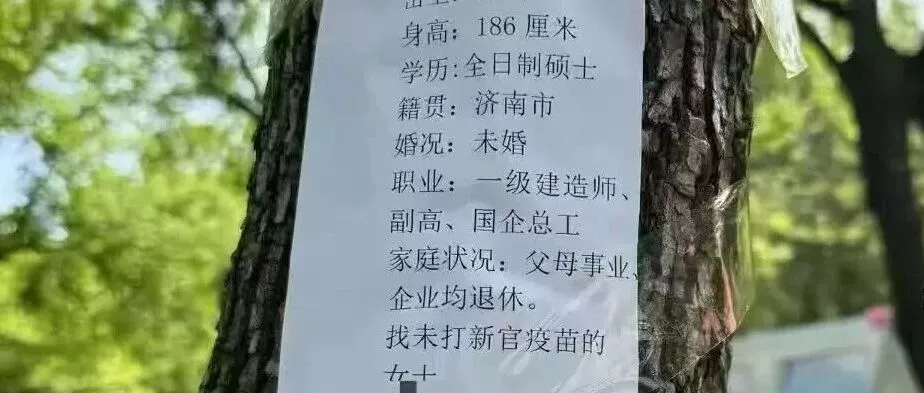 身高：186厘米
学历:全日制硕士
籍贯：济南市
婚况：未婚
职业：一级建造师、
副高、国企总工
家庭状况：父母事业、
企业均退休。
找未打新官疫苗的
女士